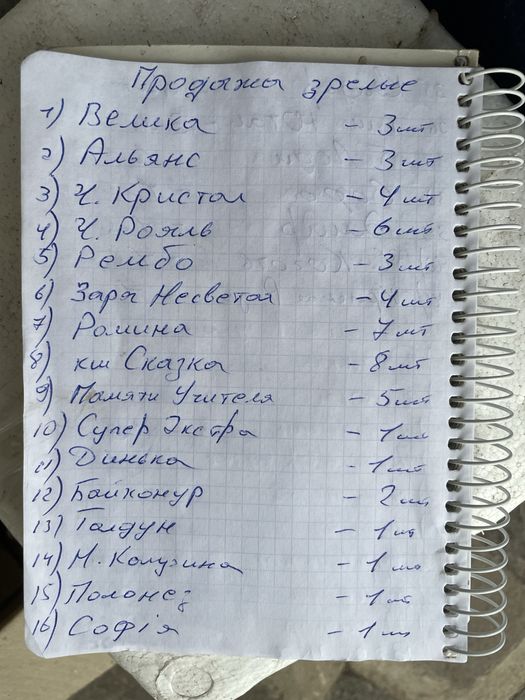 Продыжы зрелые
1) Велика - 3шт
2) Альянс - 3шт
3) Ч. Кристал - 4шт
4) Ч. Рояль - 6шт
5) Рембо - 3шт
6) Заря Несветая - 4шт
7) Ромина - 7шт
8) кш Сказка - 8шт
9) Памяти Учителя - 5шт
10) Супер Экстра - 1шт
11) Динька - 1шт
12) Байконур - 2шт
13) Талдун - 1шт
14) Н. - 1шт
15) Полонез - 1шт
16) Софія - 1шт